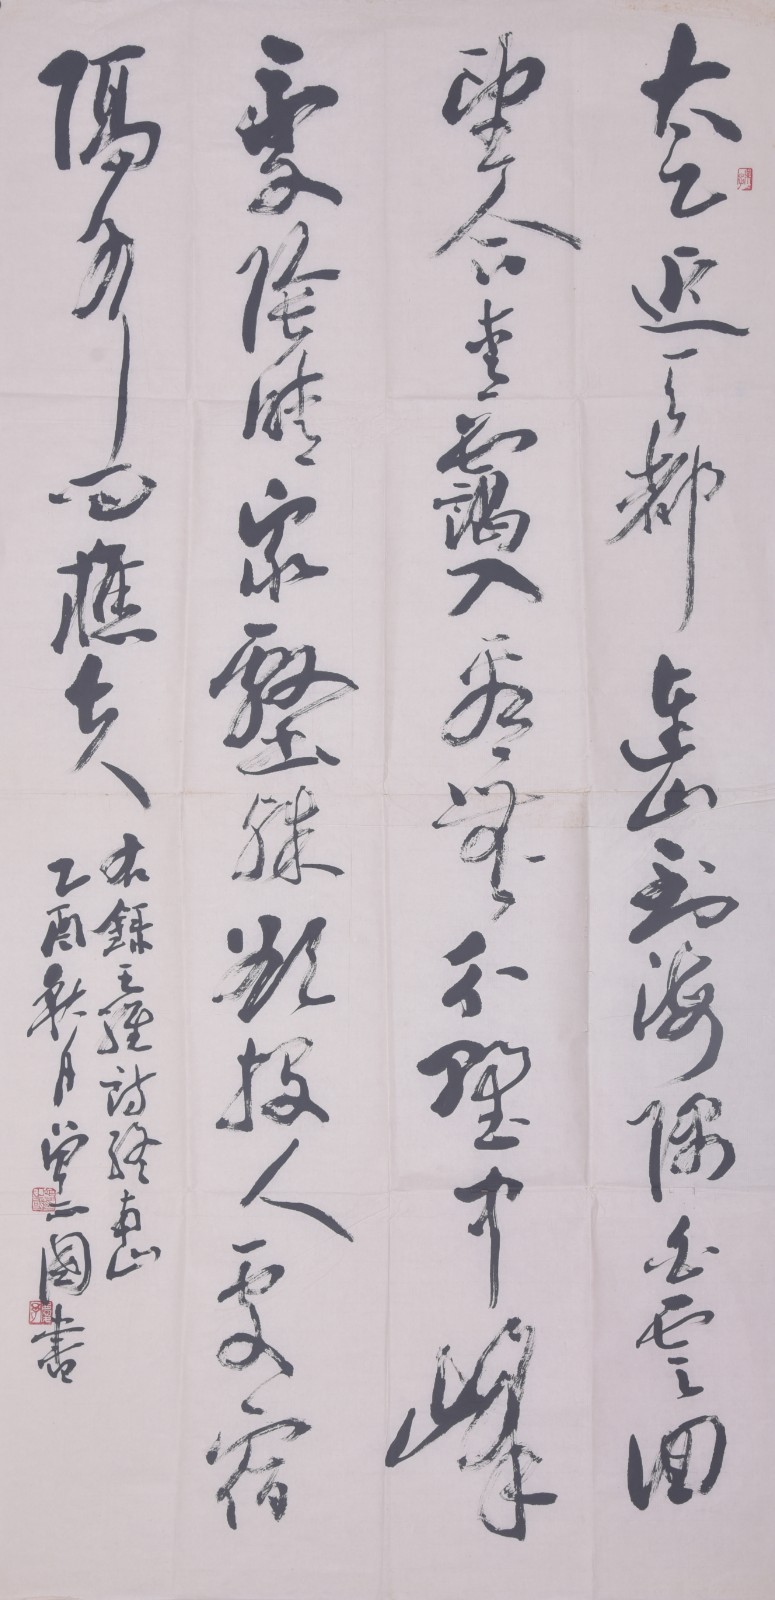 太乙近天都連山到海隅白雲回
望合青靄入看無分野中峰
變陰晴衆壑殊欲投人處宿
隔水問樵夫
右錄王維詩終南山
乙酉秋月 國書